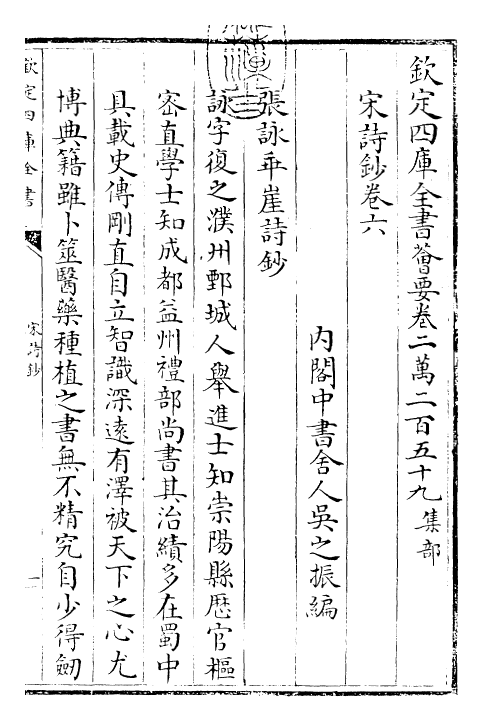 欽定四庫全書薈要卷二萬二百五十九集部
宋詩鈔卷六
內閣中書舍人吳之振編
張詠乖崖詩鈔
詠字復之濮州鄄城人舉進士知崇陽縣歴官樞
密直學士知成都益州禮部尚書其治績多在蜀中
具載史傳剛直自立智識深遠有澤被天下之心尤
博典籍雖卜筮醫藥種植之書無不精究自少得劒
欽定四庫全書
宋詩鈔
一